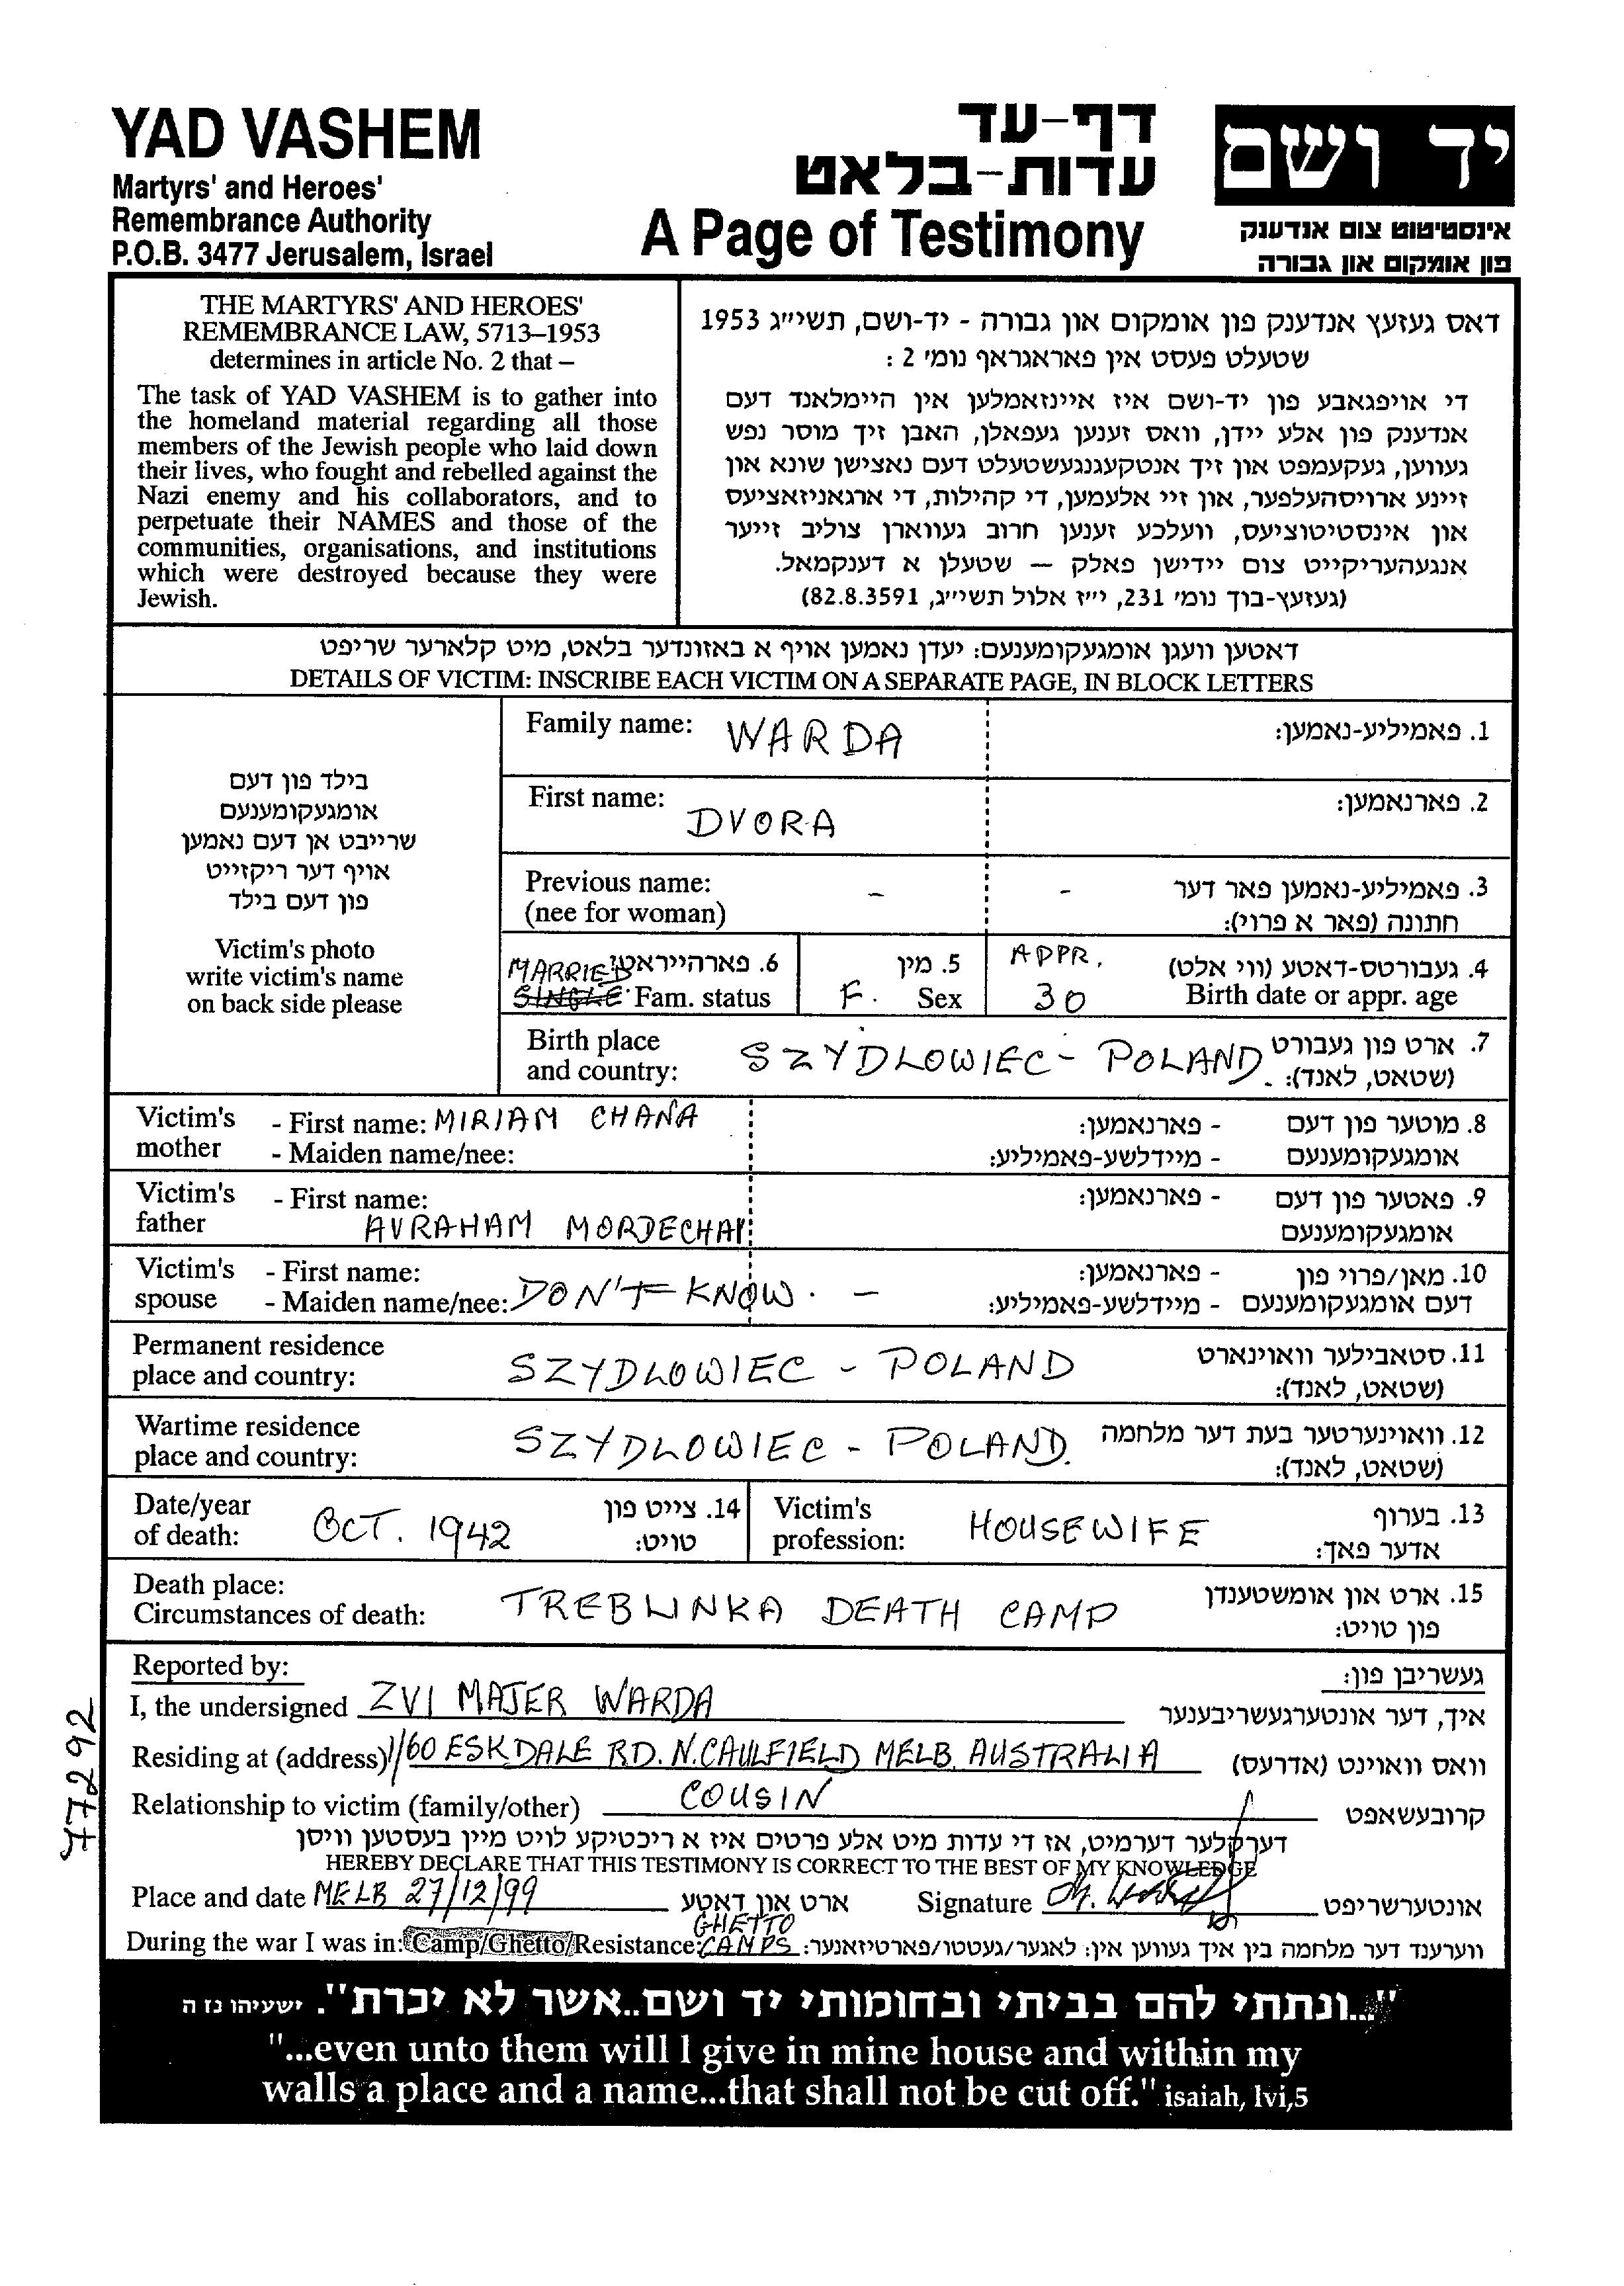 YAD VASHEM
Martyrs' and Heroes'
Remembrance Authority
P.O.B. 3477 Jerusalem, Israel
דף-עד
עדות-בלאט
A Page of Testimony
יד ושם
אינסטיטוט צום אנדענק
פון אומקום און גבורה
THE MARTYRS' AND HEROES'
REMEMBRANCE LAW, 5713–1953
determines in article No. 2 that –
The task of YAD VASHEM is to gather into
the homeland material regarding all those
members of the Jewish people who laid down
their lives, who fought and rebelled against the
Nazi enemy and his collaborators, and to
perpetuate their NAMES and those of the
communities, organisations, and institutions
which were destroyed because they were
Jewish.
דאס געזעץ אנדענק פון אומקום און גבורה - יד-ושם, תשי״ג 1953
שטעלט פעסט אין פאראגראף נומ׳ 2 :
די אויפגאבע פון יד-ושם איז איינזאמלען אין היימלאנד דעם
אנדענק פון אלע יידן, וואס זענען געפאלן, האבן זיך מוסר נפש
געווען, געקעמפט און זיך אנטקעגנגעשטעלט דעם נאצישן שונא און
זיינע ארויסהעלפער, און זיי אלעמען, די קהילות, די ארגאניזאציעס
און אינסטיטוציעס, וועלכע זענען חרוב געווארן צוליב זייער
אנגעהעריקייט צום יידישן פאלק — שטעלן א דענקמאל.
(געזעץ-בוך נומ׳ 231, י״ז אלול תשי״ג, 82.8.3591)
דאטען וועגן אומגעקומענעם: יעדן נאמען אויף א באזונדער בלאט, מיט קלארער שריפט
DETAILS OF VICTIM: INSCRIBE EACH VICTIM ON A SEPARATE PAGE, IN BLOCK LETTERS
בילד פון דעם
אומגעקומענעם
שרייבט אן דעם נאמען
אויף דער ריקזייט
פון דעם בילד
Victim's photo
write victim's name
on back side please
Family name: WARDA 1. פאמיליע-נאמען:
First name: DVORA 2. פארנאמען:
Previous name: - - 3. פאמיליע-נאמען פאר דער
(nee for woman) חתונה (פאר א פרוי):
MARRIED 6. פארהייראט: 5. מין APPR. 4. געבורטס-דאטע (ווי אלט)
SINGLE Fam. status F. Sex 30 Birth date or appr. age
Birth place SZYDLOWIEC - POLAND 7. ארט פון געבורט
and country: (שטאט, לאנד):
Victim's - First name: MIRIAM CHANA - פארנאמען: 8. מוטער פון דעם
mother - Maiden name/nee: - מיידלשע-פאמיליע: אומגעקומענעם
Victim's - First name: - פארנאמען: 9. פאטער פון דעם
father AVRAHAM MORDECHAI אומגעקומענעם
Victim's - First name: - פארנאמען: 10. מאן/פרוי פון
spouse - Maiden name/nee: DON'T KNOW. - - מיידלשע-פאמיליע: דעם אומגעקומענעם
Permanent residence 11. סטאבילער וואוינארט
place and country: SZYDLOWIEC - POLAND (שטאט, לאנד):
Wartime residence 12. וואוינערטער בעת דער מלחמה
place and country: SZYDLOWIEC - POLAND. (שטאט, לאנד):
Date/year 14. צייט פון Victim's 13. בערוף
of death: OCT. 1942 טויט: profession: HOUSEWIFE אדער פאך:
Death place: 15. ארט און אומשטענדן
Circumstances of death: TREBLINKA DEATH CAMP פון טויט:
Reported by: געשריבן פון:
I, the undersigned ZVI MAJER WARDA איך, דער אונטערגעשריבענער
Residing at (address) 1/60 ESKDALE RD. N. CAULFIELD MELB. AUSTRALIA וואס וואוינט (אדרעס)
Relationship to victim (family/other) COUSIN קרובעשאפט
דערקלער דערמיט, אז די עדות מיט אלע פרטים איז א ריכטיקע לויט מיין בעסטען וויסן
HEREBY DECLARE THAT THIS TESTIMONY IS CORRECT TO THE BEST OF MY KNOWLEDGE
Place and date MELB 27/12/99 ארט און דאטע Signature אונטערשריפט
GHETTO
During the war I was in: Camp/Ghetto/Resistance: CAMPS ווערענד דער מלחמה בין איך געווען אין: לאגער/געטטו/פארטיזאנער:
77292
"...ונתתי להם בביתי ובחומותי יד ושם..אשר לא יכרת". ישעיהו נז ה
"...even unto them will I give in mine house and within my
walls a place and a name...that shall not be cut off." isaiah, lvi,5